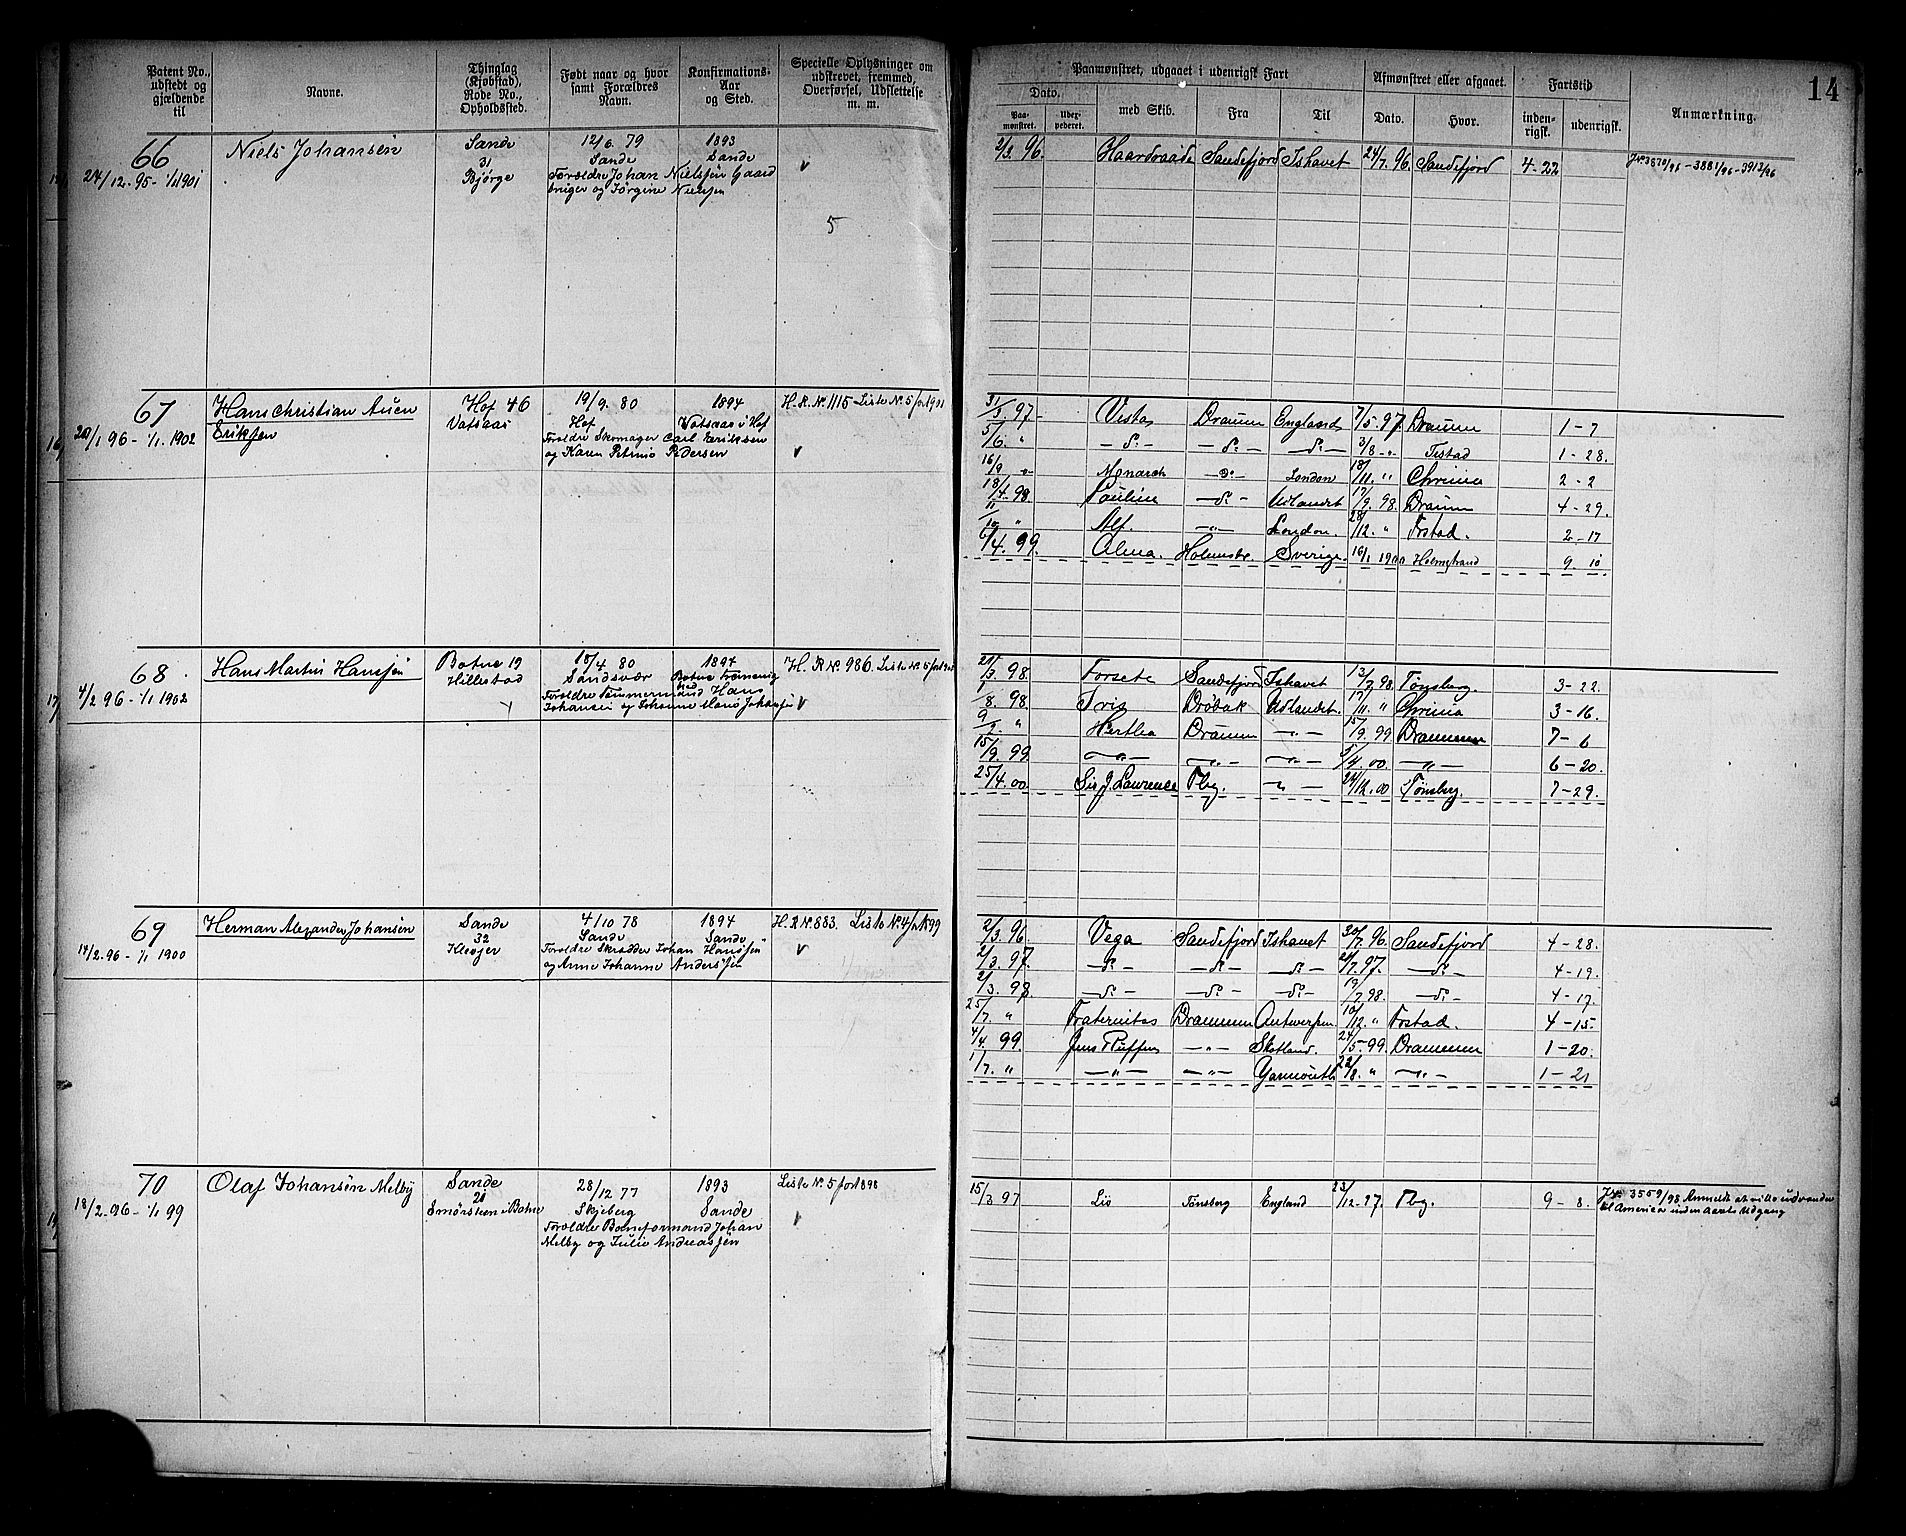 14
Patent No., udstedt og gjældende til
Navne.
Thinglag (Kjøbstad), Rode No., Opholdssted.
Født naar og hvor samt Forældres Navn.
Konfirmations-Aar og Sted.
Specielle Oplysninger om udskrevet, fremmed, Overførsel, Udslettelse m. m.
Paamønstret, udgaaet i udenrigsk Fart
Afmønstret eller afgaaet.
Fartstid
Anmærkning.
Dato.
Paa-mønstret.
med Skib.
Fra
Til
Dato.
Hvor.
inden-rigsk.
udenrigsk.
66
Niels Johansen
Sande
12/6. 79
1893
24/12. 95 - 1/1 1901
31
Sande
Sande
Bjørge
Forældre Johan Nielsen Gaard
bruger og Jörgine Nielsen
5
2/3. 96. Haardraade Sandefjord Ishavet 24/7. 96. Sandefjord 4-22
67
Hans Christian Auen
Hof 46
19/9. 80
1894
H.R. N. 1115 Liste N. 5 for 1901
20/1 96 - 1/1. 1902
Eriksen
Vatsaas
Hof
Vatsaas i Hof
Foreldre Skomager Carl Eriksen
og Karen Petrine Pedersen
31/3. 97 - Vesta Dramm England 7/5. 97. Dramm 1-7
5/6. " - do - - do - - do - 3/8 - " 1-28.
16/9 " Monarch - do - London 18/11. " Chrinia 2-2
18/4. 98. Pauline - do - Udlandet 17/9. 98. Dramm 4-29.
11/10 " Alf. - " - London. 28/12. " Frstad. 2-17
6/4. 99. Alma. Holmstr. Sverige. 16/1 1900 Holmstrand 9. 10
68.
Hans Martin Hansen
Botne 19
18/4 80
1894
H. R N. 986. Liste N. 5 for
4/2 96 - 1/1 1902
Hillestad
Sandsvær
Foreldre Tømmermand Hans
Johansen og Johanne Marie Johansen
21/3. 98. Forsete Sandefjord Ishavet 13/7 98. Tønsberg. 3-22.
1/8. 98. Drøbak Udlandet. 17/11. " Chrinia 3-16.
9/2. " Hertha Dramm - " - 15/9. 99 Drammen 7-6
15/9. 99 - " - - " - - " - 5/4. 00. - " - 6-20.
25/4. 00 Sir J. Lawrence Tbg. - " - 24/12. 00 Tønsberg. 7-29.
69
Herman Alexander Johansen
Sande
4/10 78
1894
H. R N. 883. Liste N. 4/1899
14/2. 96 - 1/1 1900
32
Sande
Sande
Klevjer
Foreldre Skrædder Johan Hansen
og Anne Johanne Andersen
2/3. 96 Vega Sandefjord Ishavet 30/7. 96. Sandefjord 4-28.
2/3. 97. - do - - do - - do - 21/7. 97. - do - 4-19.
2/3. 98 - do - - do - - do - 19/7. 98. - do - 4-17.
25/7. " Fraternitas Drammen Antwerpen 10/12. " Frstad. 4-15.
4/4. 99 - " - Skotland. 24/5. 99. Drammen 1-20.
1/7. " - " - - " - Yarmouth 22/8. " - " - 1-21
70
Olaf Johansen Melby
Sande
28/12 77
1893
Liste N. 5 for 1898
18/2. 96 - 1/1 99
21
Skjeberg
Sande
Smørsteen i Botne
Foreldre Baneformand Johan
Melby og Julie Andreasen
15/3 97 Liv Tønsberg England 23/12. 97. Tbg. 9-8.
Jn. 3559/98 Anmeldt at ville udvandre
til America inden Aarets Udgang